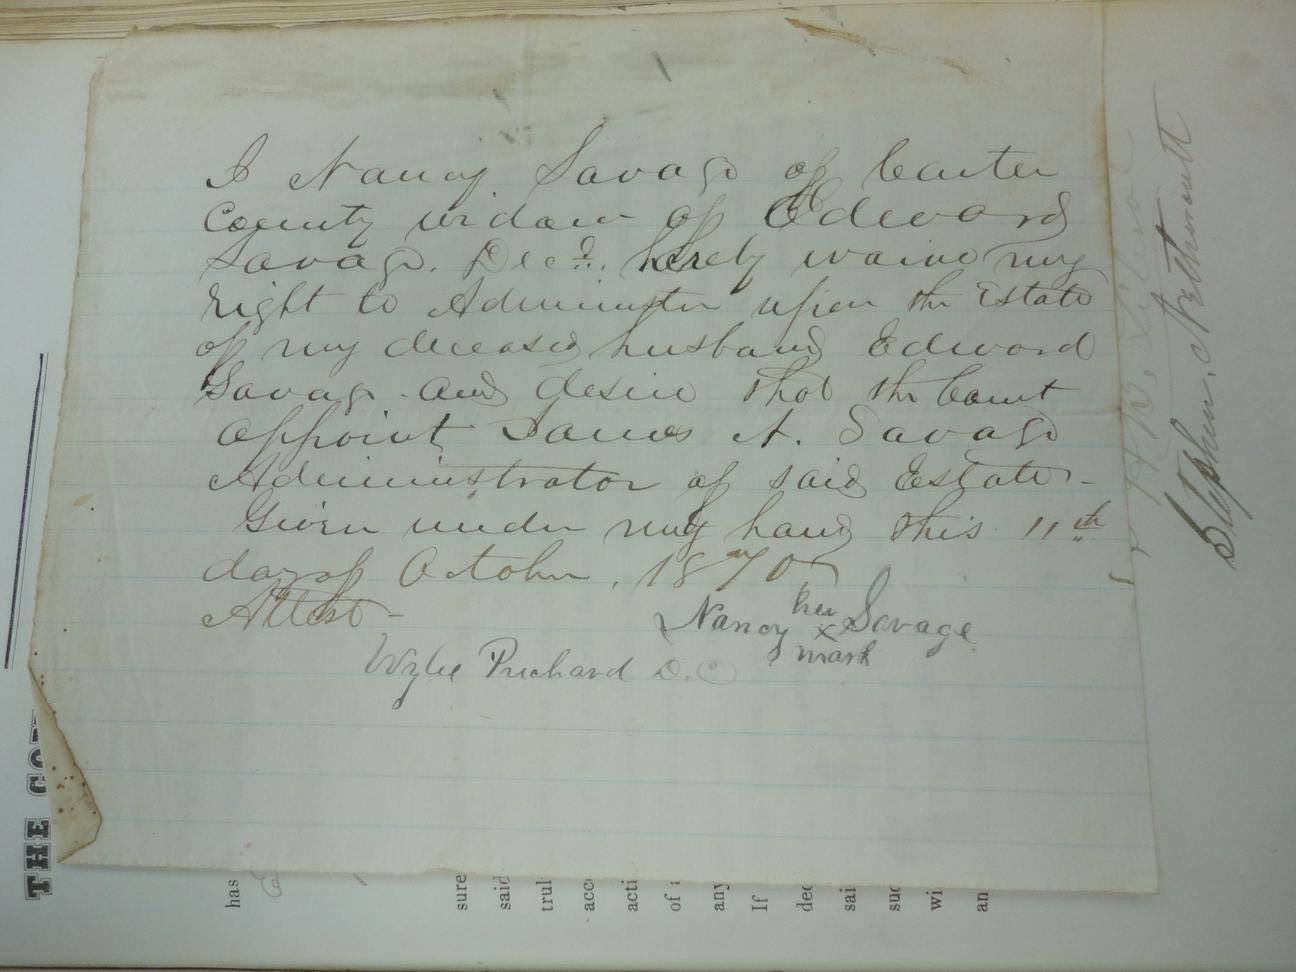 I Nancy Savage of Carter
County widow of Edward
Savage. Decd. hereby waive my
right to Administer upon the Estate
of my deceased husband Edward
Savage. and desire that the Court
appoint James A. Savage
Administrator of said Estate-
Given under my hand this 11th
day of October, 1870
Attest-
Nancy her x mark Savage
Wylie Prichard D.C
Stephen
THE CO
has
sure
said
trul
acc
acti
of
any
If
dec
sai
suc
wi
an